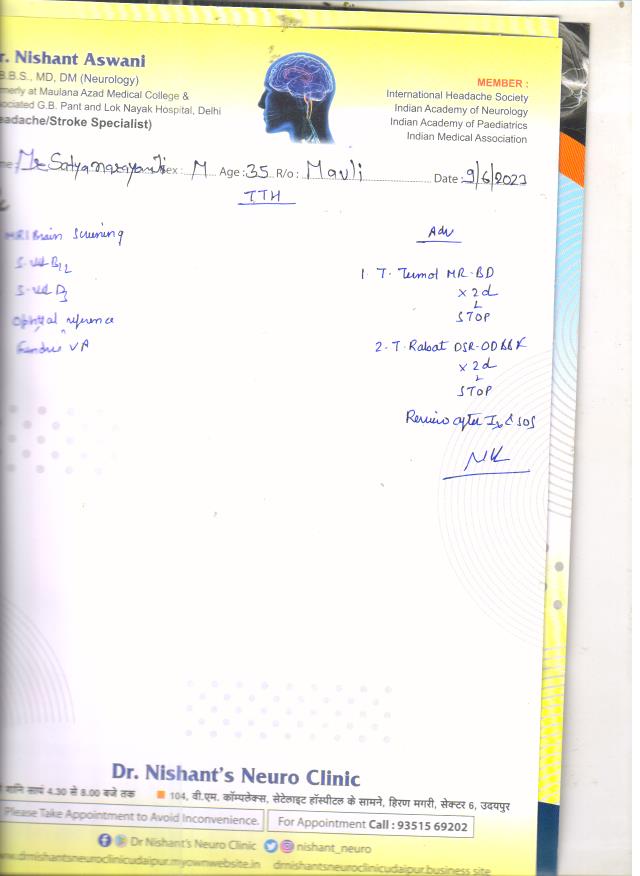 r. Nishant Aswani
B.B.S., MD, DM (Neurology)
merly at Maulana Azad Medical College &
ociated G.B. Pant and Lok Nayak Hospital, Delhi
eadache/Stroke Specialist)
MEMBER :
International Headache Society
Indian Academy of Neurology
Indian Academy of Paediatrics
Indian Medical Association
me: Mr Satyanarayan Sex: M Age: 35 R/o: Mavli Date: 9/6/2023
TTH
MRI Brain Screening
S. Vit B12
S. Vit D3
Ophthal reference
Fundus VA
Adv
1. T. Termol MR-BD
x 2d
↓
STOP
2. T. Rabat DSR-OD BBF
x 2d
↓
STOP
Review after Ix & SOS
Dr. Nishant's Neuro Clinic
शनि सायं 4.30 से 8.00 बजे तक 104, वी.एम. कॉम्पलेक्स, सेटेलाइट हॉस्पीटल के सामने, हिरण मगरी, सेक्टर 6, उदयपुर
Please Take Appointment to Avoid Inconvenience. For Appointment Call : 93515 69202
Dr Nishant's Neuro Clinic nishant_neuro
www.drnishantsneuroclinicudaipur.myownwebsite.in drnishantsneuroclinicudaipur.business.site